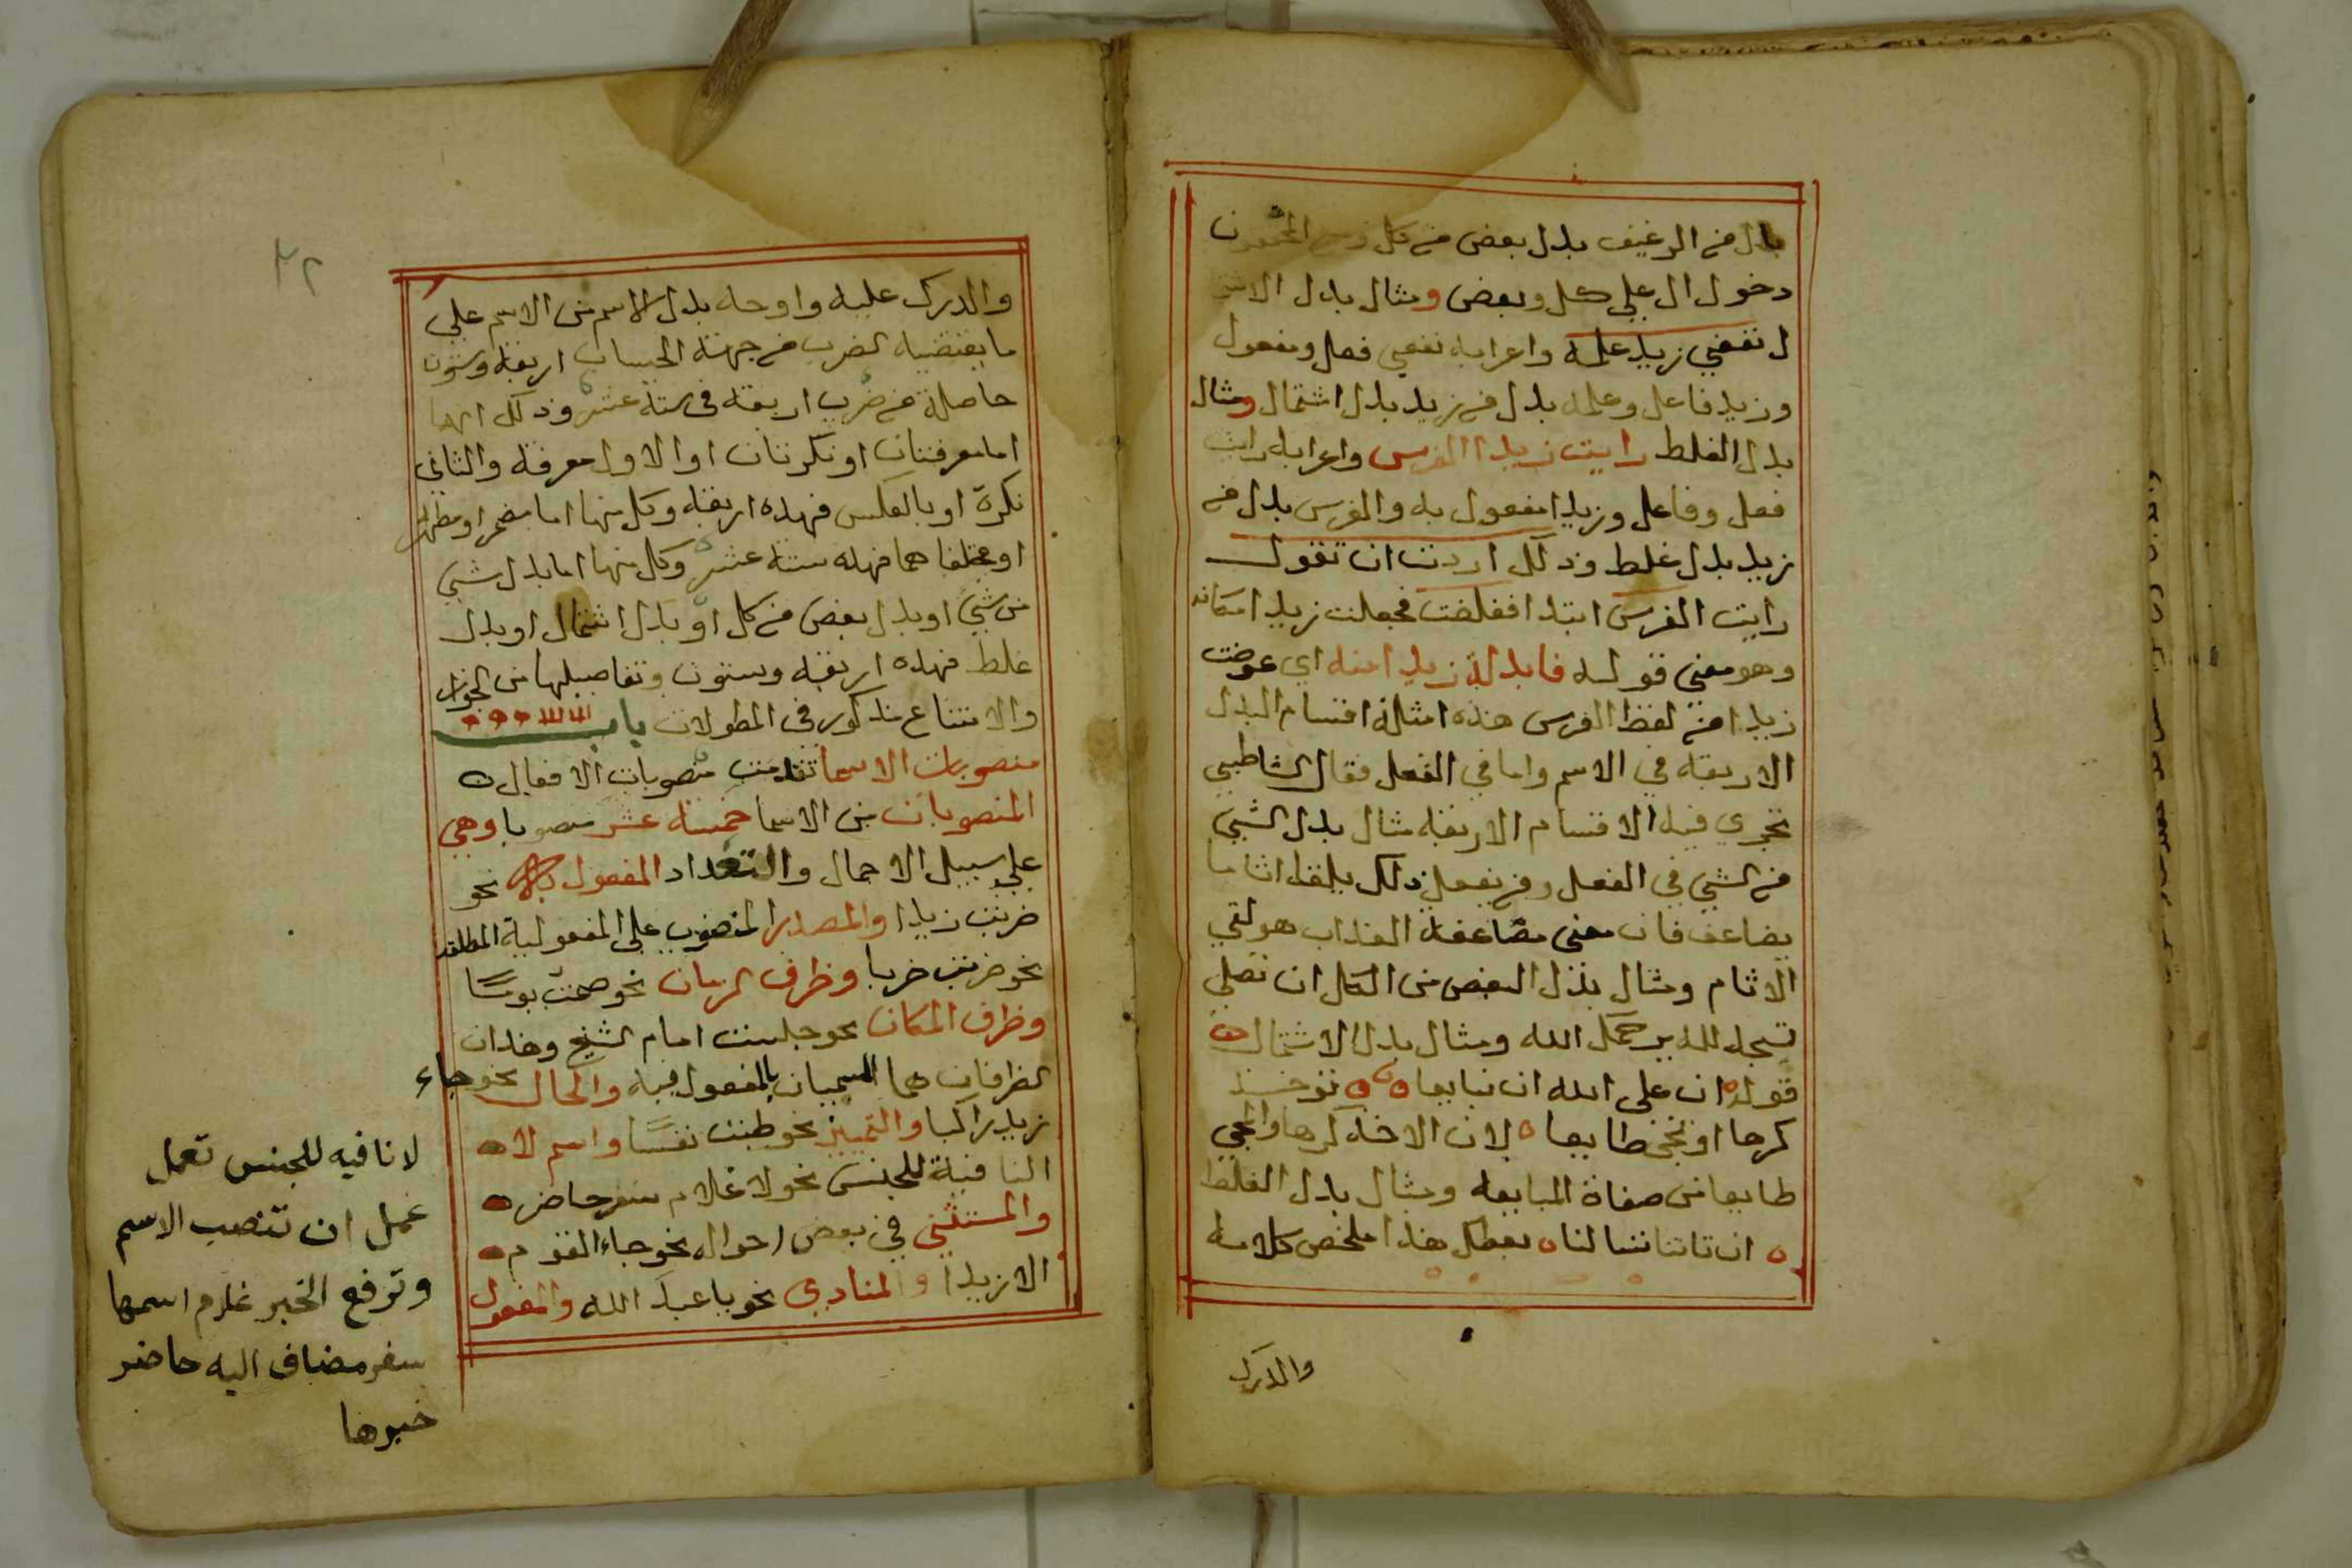 بدل من الرغيف بدل بعض من كل
دخول ال علي كل وبعض ومثال بدل الاشتما
ل نفعني زيد علمه واعرابه نفعني فعل ومفعول
وزيد فاعل وعلمه بدل من زيد بدل اشتمال ومثال
بدل الغلط رايت زيدا الفرس واعرابه رايت
فعل وفاعل وزيدا مفعول به والفرس بدل من
زيد بدل غلط وذلك اردت ان تقول
رايت الفرس ابتدا فغلطت فجعلت زيدا مكانه
وهو معني قوله فابدلة زيدا منه اي عوضت
زيدا من لفظ الفرس هذه امثلة اقسام البدل
الاربعة في الاسم واما في الفعل فقال الشاطبي
تجري فيه الاقسام الاربعة مثال بدل الشي
من الشي في الفعل ومن يفعل ذلك يلقا اثاما
يضاعف فان معني مضاعفة العذاب هو لقي
الاثام ومثال بدل البعض من الكل ان تصلي
تسجد لله يرحمك الله ومثال بدل الاشتمال
قوله ان علي الله ان تبايعا توخذ
كرها او تجي طايعا لان الاخذ كرها والمجي
طايعا من صفاة المبايعه ومثال بدل الغلط
ان تاتنا تسالنا نعطك هذا ملخص كلامه
والدرك
والدرك عليه واوجه بدل الاسم من الاسم علي
ما يقتضيه الضرب من جهة الحساب اربعة وستون
حاصلة من ضرب اربعة في ستة عشر وذلك انهما
اما معرفتان او نكرتان او الاول معرفة والثاني
نكرة او بالعكس فهذه اربعة وكل منها اما مضمر او مظهر
او مختلفا هما فهذه ستة عشر وكل منها اما بدل شي
من شي او بدل بعض من كل او بدل اشتمال او بدل
غلط فهذه اربعة وستون وتفاصيلها من الجواز
والامتناع مذكور في المطولات باب
منصوبات الاسما تقدمت منصوبات الافعال
المنصوبات من الاسما خمسة عشر منصوبا وهي
علي سبيل الاجمال والتعداد المفعول به نحو
ضربت زيدا والمصدر المنصوب علي المفعولية المطلقة
نحو ضربت ضربا وظرف الزمان نحو صمت يومًا
وظرف المكان نحو جلست امام الشيخ وهذان
الظرفان هما المسميان بالمفعول فيه والحال نحو جاء
زيد راكبا والتمييز نحو طبت نفسًا واسم لا
النافية للجنس نحو لا غلام سفر حاضر
والمستثني في بعض احواله نحو جاء القوم
الا زيدا والمنادي نحو يا عبد الله والمفعول
لا نافيه للجنس تعمل
عمل ان تنصب الاسم
وترفع الخبر غلام اسمها
سفر مضاف اليه حاضر
خبرها